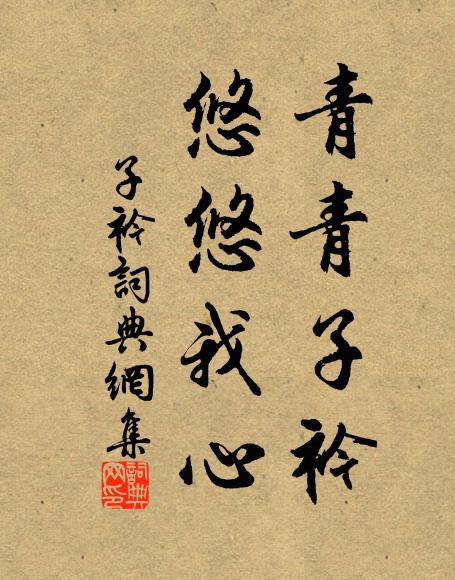 青青子衿
悠悠我心
子衿詞典網集
詞典網印